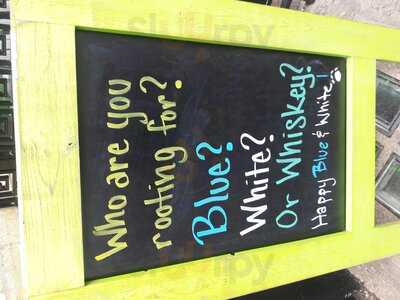 Who are you
rooting for?
Blue?
White?
Or Whiskey?
Happy Blue & White!